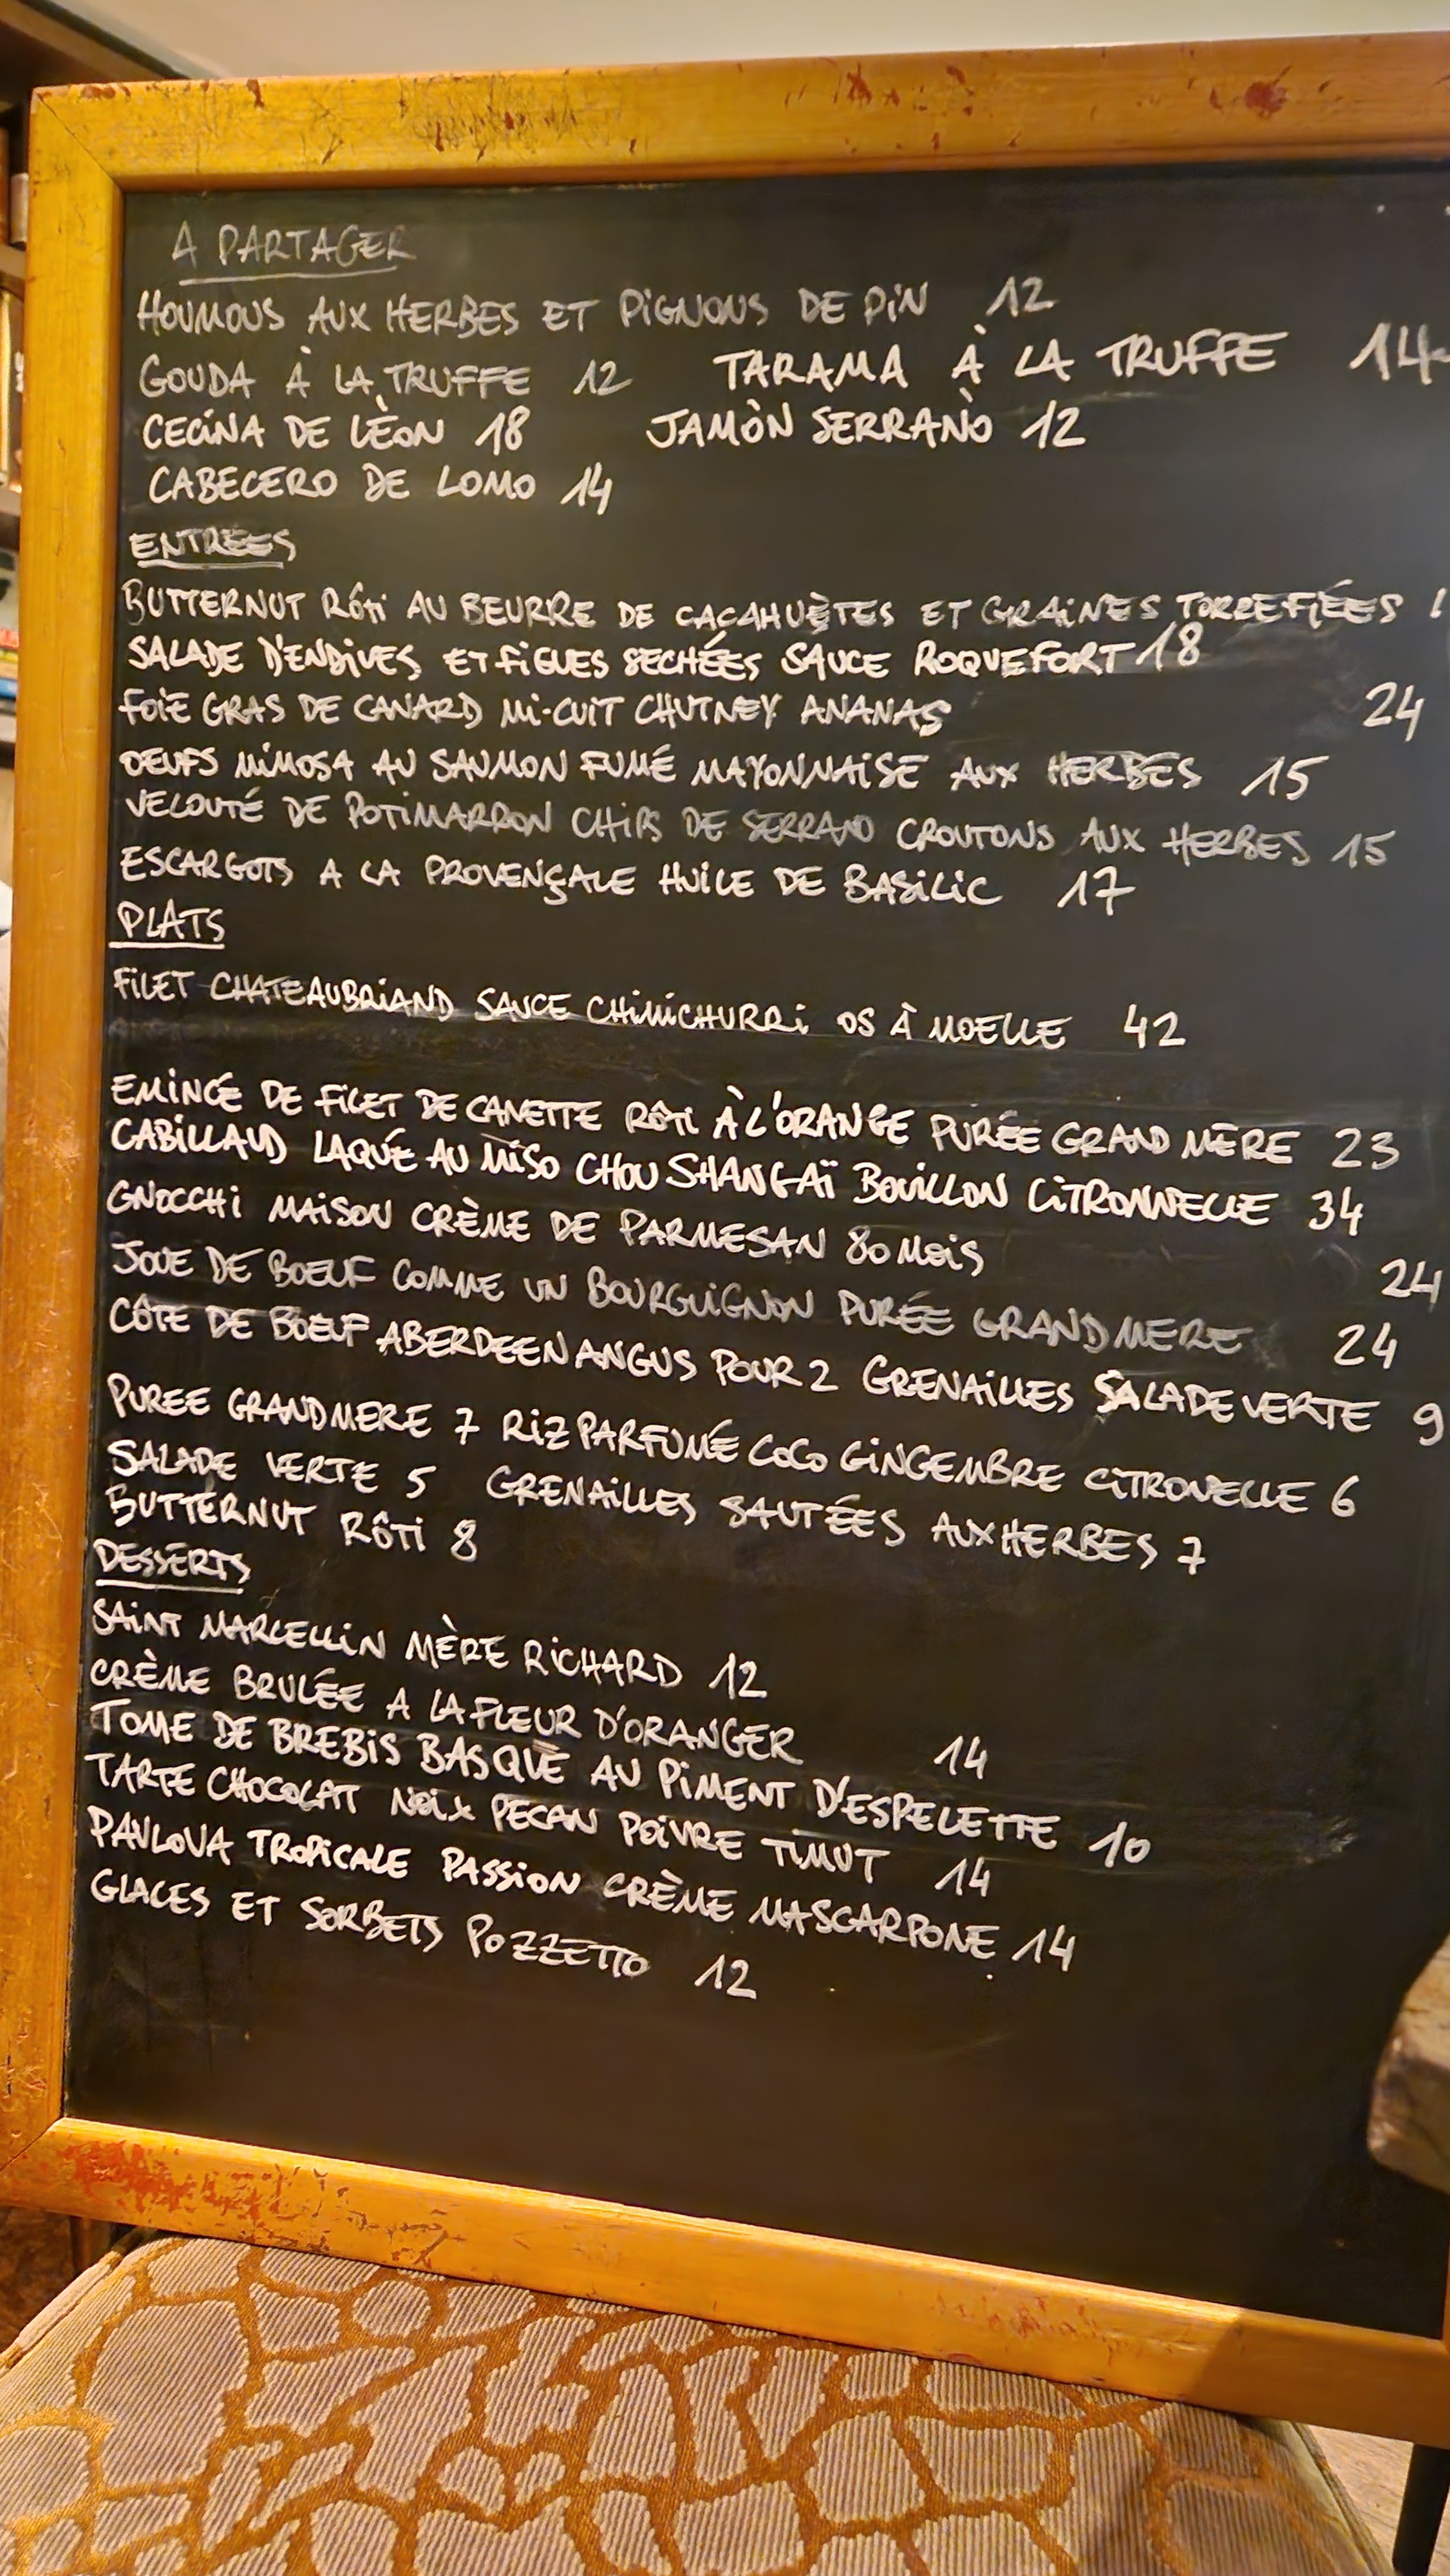 A PARTAGER
HOUMOUS AUX HERBES ET PIGNONS DE PIN 12
GOUDA À LA TRUFFE 12 TARAMA À LA TRUFFE 14
CECINA DE LÈON 18 JAMÒN SERRANÒ 12
CABECERO DE LOMO 14
ENTREES
BUTTERNUT RÔTI AU BEURRE DE CACAHUÈTES ET GRAINES TORREFIÉES
SALADE D'ENDIVES ET FIGUES SECHÉES SAUCE ROQUEFORT 18
FOIE GRAS DE CANARD MI-CUIT CHUTNEY ANANAS 24
OEUFS MIMOSA AU SAUMON FUMÉ MAYONNAISE AUX HERBES 15
VELOUTÉ DE POTIMARRON CHIPS DE SERRANO CROUTONS AUX HERBES 15
ESCARGOTS A LA PROVENÇALE HUILE DE BASILIC 17
PLATS
FILET CHATEAUBRIAND SAUCE CHIMICHURRI OS À MOELLE 42
EMINCÉ DE FILET DE CANETTE RÔTI À L'ORANGE PURÉE GRAND MÈRE 23
CABILLAUD LAQUÉ AU MISO CHOU SHANGAÏ BOUILLON CITRONNELLE 34
GNOCCHI MAISON CRÈME DE PARMESAN 80 MOIS 24
JOUE DE BOEUF COMME UN BOURGUIGNON PURÉE GRAND MERE 24
CÔTE DE BOEUF ABERDEEN ANGUS POUR 2 GRENAILLES SALADE VERTE 9
PUREE GRAND MERE 7 RIZ PARFUMÉ COCO GINGEMBRE CITRONELLE 6
SALADE VERTE 5 GRENAILLES SAUTÉES AUX HERBES 7
BUTTERNUT RÔTI 8
DESSERTS
SAINT MARCELLIN MÈRE RICHARD 12
CRÈME BRULÉE A LA FLEUR D'ORANGER 14
TOME DE BREBIS BASQUE AU PIMENT D'ESPELETTE 10
TARTE CHOCOLAT NOIX PECAN POIVRE TIMUT 14
PAVLOVA TROPICALE PASSION CRÈME MASCARPONE 14
GLACES ET SORBETS POZZETTO 12